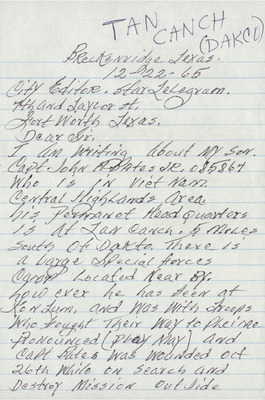 TAN
CANCH
(DAKTO)
Breckenridge Texas.
12-22-65
City Editor. Star Telegram.
7th and Taylor st.
Fort Worth Texas.
Dear Sir.
I Am Writing About My Son.
Capt. John A Bates Jr. 085867
Who is in Viet Nam.
Central Highlands Area.
his Permanet Headquarters
is At Tan Canch. 6 Miles
South Of Dakto. There is
A Large Special forces
Camp Located Near By.
how ever he has Been at
Kontum, and Was With Troops
Who Fought Their Way to Pleime
Pronounced (Play May) and
Capt Bates Was Wounded oct
26th While on Search and
Destroy Mission Out Side